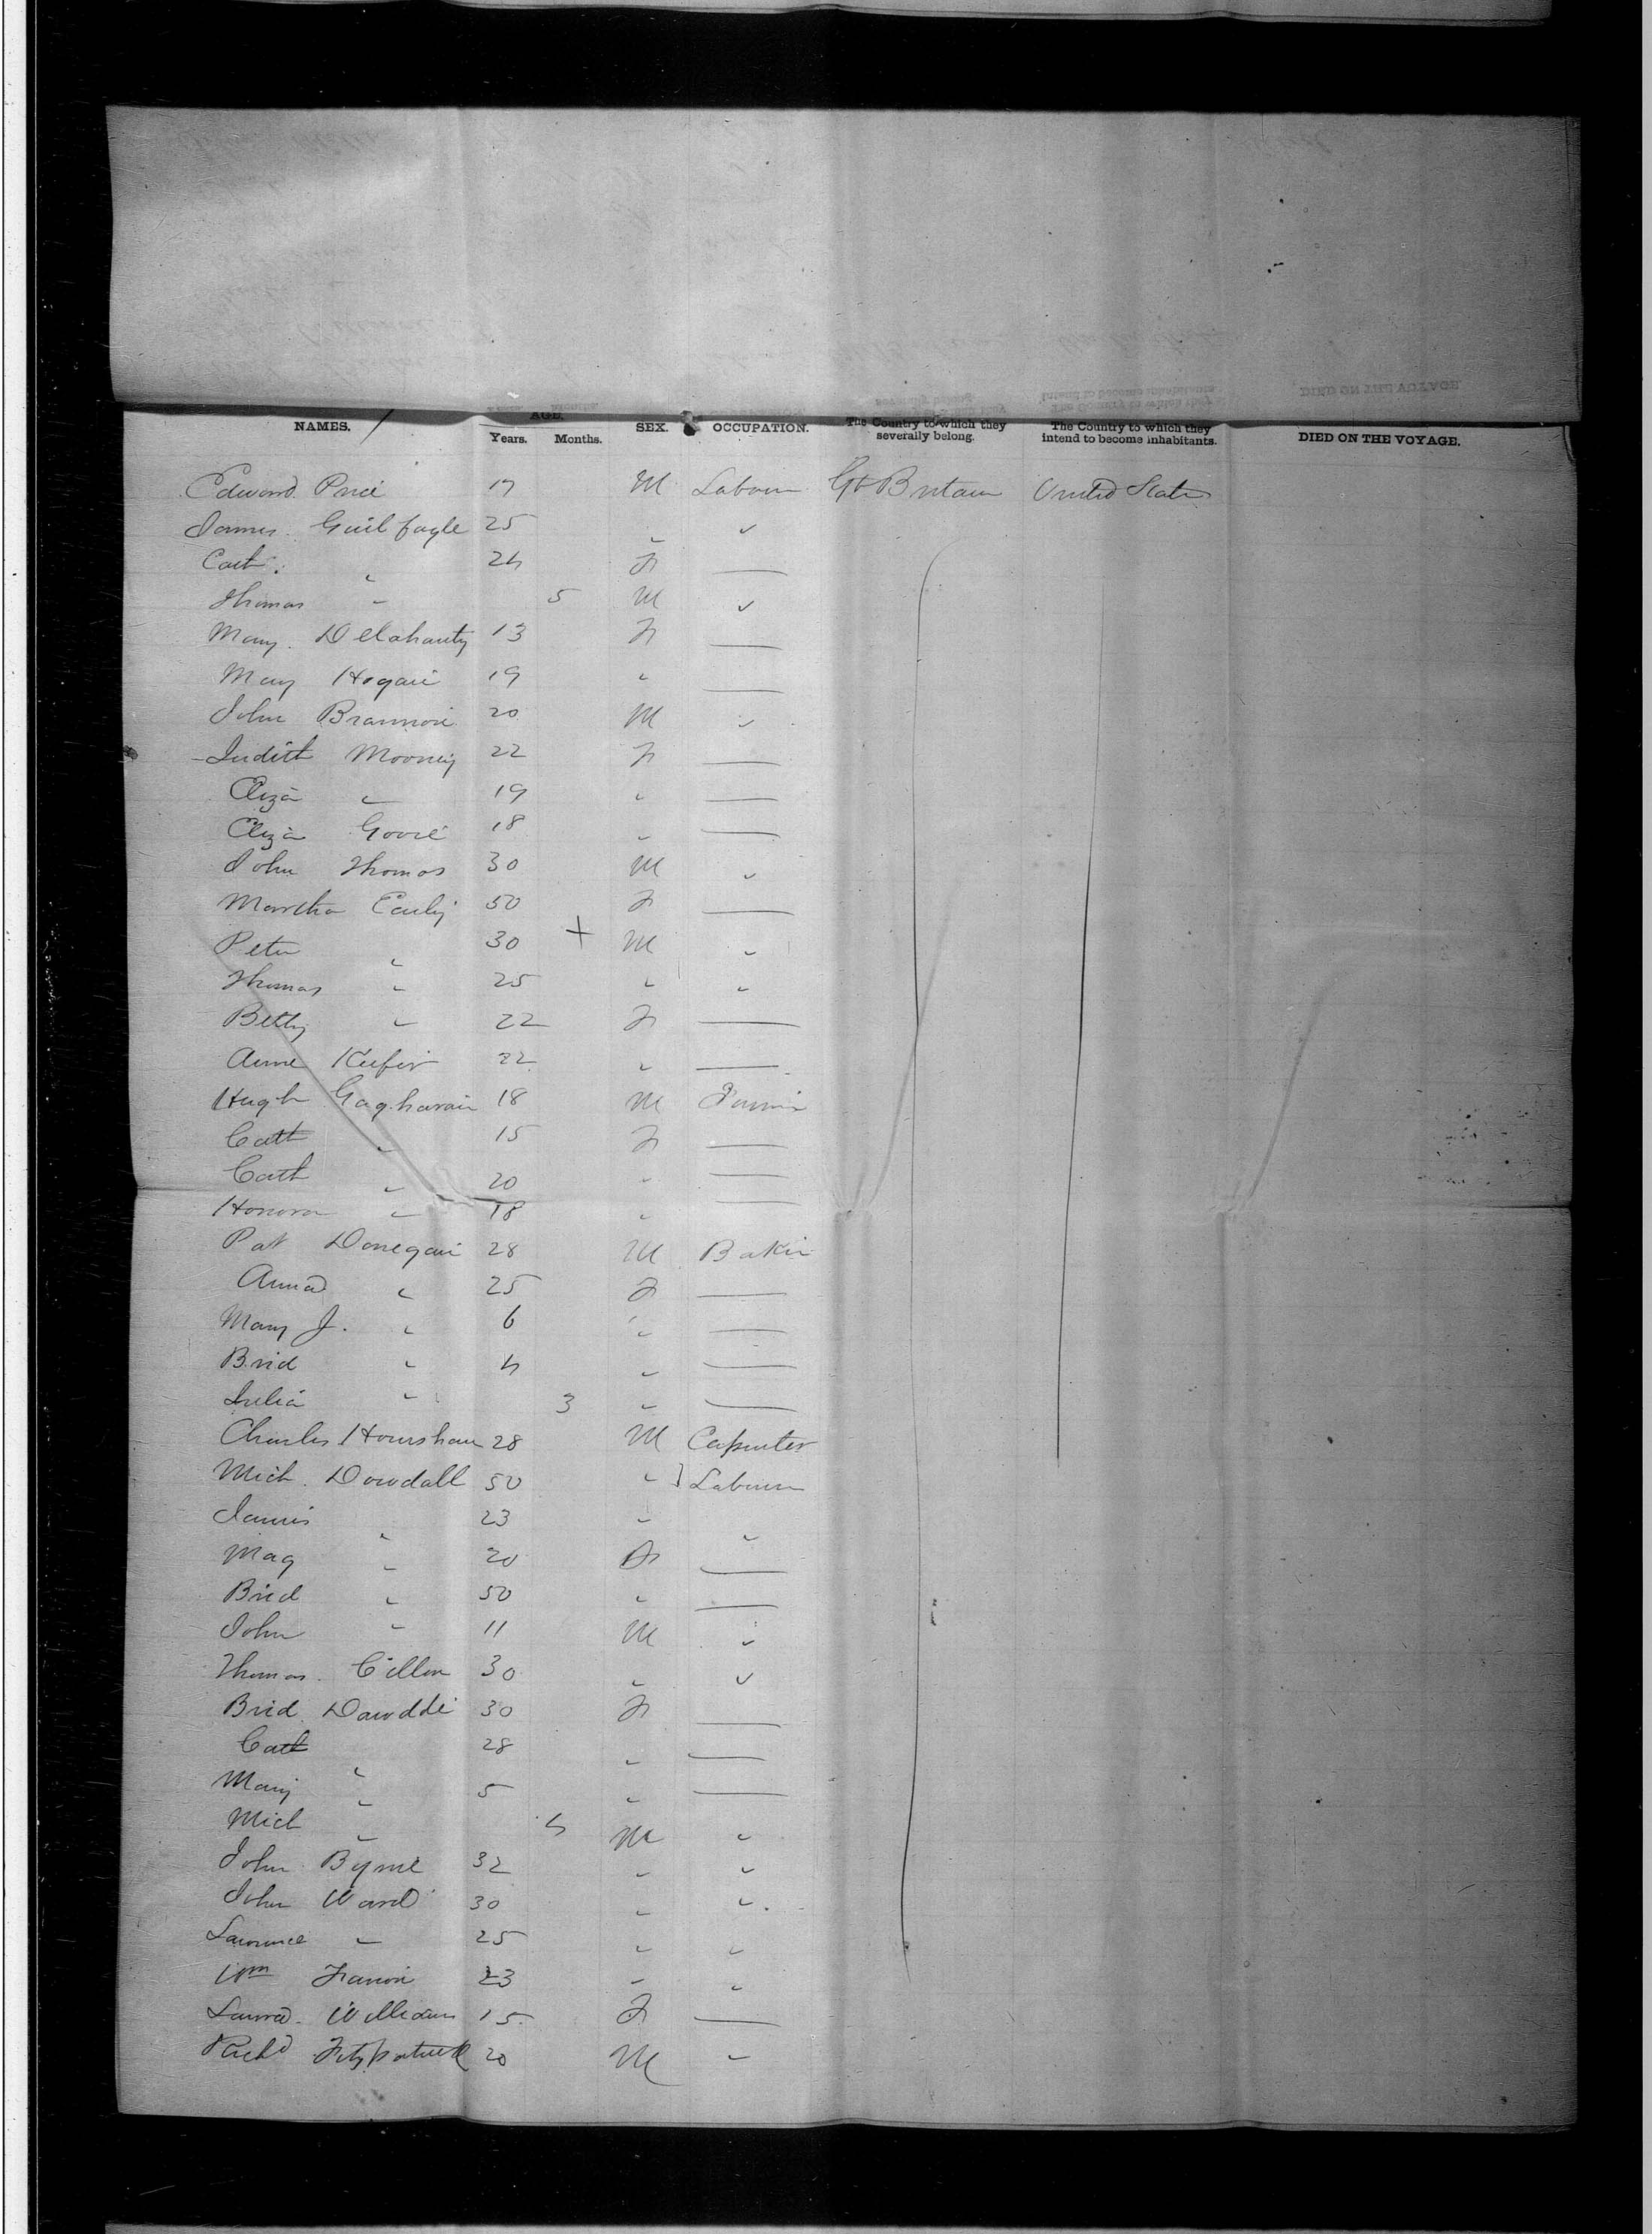 NAMES. AGE. SEX. OCCUPATION. The Country to which they severally belong. The Country to which they intend to become inhabitants. DIED ON THE VOYAGE.
Years. Months.
Edward Price 17 M Labourer Gt Britain United States
James Guilfoyle 25 " "
Cath. " 24 F —
Thomas " 5 M "
Mary Delahanty 13 F —
Mary Hogan 19 " —
John Brannon 20 M "
Judith Mooney 22 F —
Eliza " 19 " —
Eliza 18 " —
John Thomas 30 M "
Martha Early 50 F —
Peter " 30 + M "
Thomas " 25 " "
Betty " 22 F —
Anne 22 " —
Hugh 18 M
Cath " 15 F —
Cath " 20 " —
Honora " 18 " —
Pat Donegan 28 M Baker
Anna " 25 F —
Mary J. " 6 " —
Brid " 4 " —
Julia " 3 " —
Charles 28 M Carpenter
Mich. Dowdall 50 " Labourer
James " 23 " "
Mag " 20 F —
Brid " 50 " —
John " 11 M "
Thomas 30 " "
Brid 30 F —
Cath " 28 " —
Mary " 5 " —
Mich " 4 M "
John Byrne 32 " "
John Ward 30 " "
Lawrence " 25 " "
Wm 23 " "
Laura Williams 15 F —
Richd Fitzpatrick 20 M "